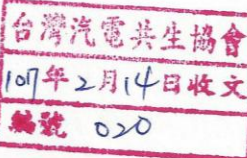 台灣汽電共生協會
107年2月14日收文
編號 020